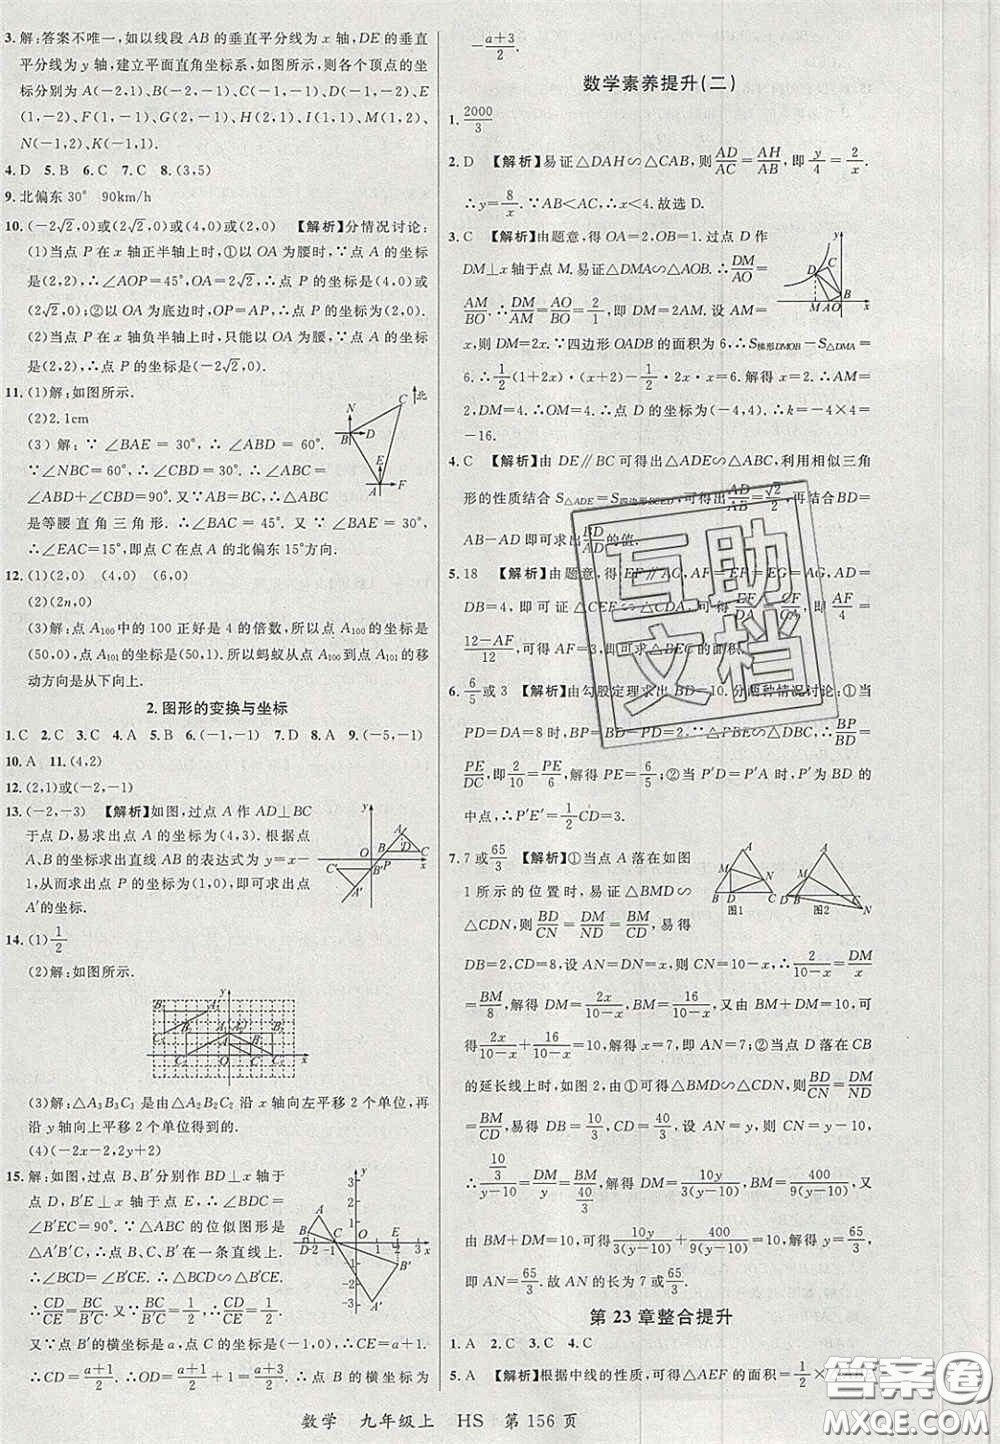 3.解:答案不唯一,如以线段AB的垂直平分线为x轴,DE的垂直
平分线为y轴,建立平面直角坐标系,如图所示,则各个顶点的坐
标分别为A(-2,1),B(-2,-1),C(2,-1),D(2,1),E(1,1),F(1,-1),G(1,-2),H(1,2),I(-1,2),M(-1,-2),
N(-1,-1),K(-1,1).
4.D 5.B 6.C 7.C 8.(3,5)
9.北偏东30° 90km/h
10.(-2√2,0)或(2√2,0)或(4,0)或(2,0) 【解析】分情况讨论:
(1)当点P在x轴正半轴上时,①以OA为腰时,∵点A的坐标
是(2,2),∴∠AOP=45°,OA=2√2,∴点P的坐标是(4,0)或
(2√2,0);②以OA为底边时,OP=AP,∴点P的坐标是(2,0).
(2)当点P在x轴负半轴上时,只有以OA为腰,∵点A的坐标是
(2,2),∴OA=2√2,∴OP=OA=2√2,∴点P的坐标是
(-2√2,0).
11.(1)解:如图所示.
(2)2.1cm
(3)解:∵∠BAE=30°,∴∠ABD=60°.
∵∠NBC=60°,∴∠CBD=30°.∴∠ABC=
∠ABD+∠CBD=90°.又∵AB=BC,∴△ABC
是等腰直角三角形.∴∠BAC=45°.又∵∠BAE=30°,
∴∠EAC=15°,即点C在点A的北偏东15°方向.
12.(1)(2,0) (4,0) (6,0)
(2)(2n,0)
(3)解:点A₁₀₀中的100正好是4的倍数,所以点A₁₀₀的坐标是
(50,0),点A₁₀₁的坐标是(50,1).所以蚂蚁从点A₁₀₀到点A₁₀₁的移
动方向是从下向上.
2.图形的变换与坐标
1.C 2.C 3.C 4.A 5.B 6.(-1,-1) 7.D 8.A 9.(-5,-1)
10.A 11.(4,2)
12.(2,1)或(-2,-1)
13.(-2,-3) 【解析】如图,过点A作AD⊥BC
于点D,易求出点A的坐标为(4,3).根据点
A、B的坐标求出直线AB的表达式为y=x-
1,从而求出点P的坐标为(1,0),即可求出点
A′的坐标.
14.(1)1/2
(2)解:如图所示.
(3)解:△A₃B₃C₃是由△A₂B₂C₂沿x轴向左平移2个单位,再
沿y轴向上平移2个单位得到的.
(4)(-2x-2,2y+2)
15.解:如图,过点B、B′分别作BD⊥x轴于
点D,B′E⊥x轴于点E,∴∠BDC=
∠B′EC=90°.∵△ABC的位似图形是
△A′B′C,∴点B、C、B′在一条直线上.
∴∠BCD=∠B′CE.∴△BCD∽△B′CE.
∴CD/CE=BC/B′C.又∵BC/B′C=1/2,∴CD/CE=1/2.
又∵点B′的横坐标是a,点C的坐标是(-1,0),∴CE=a+1.
∴CD=(a+1)/2.∴OD=(a+1)/2+1=(a+3)/2.∴点B的横坐标为
-(a+3)/2.
数学素养提升(二)
1.2000/3
2.D 【解析】易证△DAH∽△CAB,则AD/AC=AH/AB,即y/4=2/x.
∴y=8/x.∵AB<AC,∴x<4.故选D.
3.C 【解析】由题意,得OA=2,OB=1.过点D作
DM⊥x轴于点M.易证△DMA∽△AOB.∴DM/AO=
AM/BO.∴DM/AM=AO/BO=2/1,即DM=2AM.设AM=
x,则DM=2x.∵四边形OADB的面积为6,∴S梯形DMOB-S△DMA=
6.∴1/2(1+2x)(x+2)-1/2·x·2x=6.解得x=2.∴AM=
2,DM=4.∴OM=4.∴点D的坐标为(-4,4).∴k=-4×4=
-16.
4.C 【解析】由DE∥BC可得出△ADE∽△ABC,利用相似三角
形的性质结合S△ADE=S四边形BCED,可得出AD/AB=√2/2,再结合BD=
AB-AD即可求出BD/AD的值.
5.18 【解析】由题意,得EF∥AC,AF=EF=EG=AG,AD=
DB=4,即可证△CEF∽△CDA,可得EF/DA=CF/CA,即AF/4=
(12-AF)/12,解得AF=3,即可求得△BEC的面积.
6.6/5或3 【解析】由勾股定理求出BD=10.分两种情况讨论:①当
PD=DA=8时,BP=BD-PD=2.∵△PBE∽△DBC,∴BP/BD=
PE/DC,即2/10=PE/6,解得PE=6/5;②当P′D=P′A时,P′为BD的
中点,∴P′E′=1/2CD=3.
7.7或65/3 【解析】①当点A落在如图
1所示的位置时,易证△BMD∽
△CDN,则BD/CN=DM/ND=BM/CD,易得
DB=2,CD=8,设AN=DN=x,则CN=10-x,∴2/(10-x)=DM/x
=BM/8,解得DM=2x/(10-x),BM=16/(10-x),又由BM+DM=10,得
2x/(10-x)+16/(10-x)=10,解得x=7,即AN=7;②当点D落在CB
的延长线上时,如图2,由①可得△BMD∽△CDN,∴BD/CN=DM/ND=
BM/CD,易得DB=10/3,CD=40/3,设AN=DN=y,则CN=y-10,
∴(10/3)/(y-10)=DM/y=BM/(40/3),解得DM=10y/3(y-10),BM=400/9(y-10),又
由BM+DM=10,得10y/3(y-10)+400/9(y-10)=10,解得y=65/3,
即AN=65/3.故AN的长为7或65/3.
第23章整合提升
1.A 2.C 3.C 4.C
5.A 【解析】根据中线的性质,可得△AEF的面积=1/2×
数学 九年级上 HS 第156页
互助
文档
答案圈
MXQE.COM